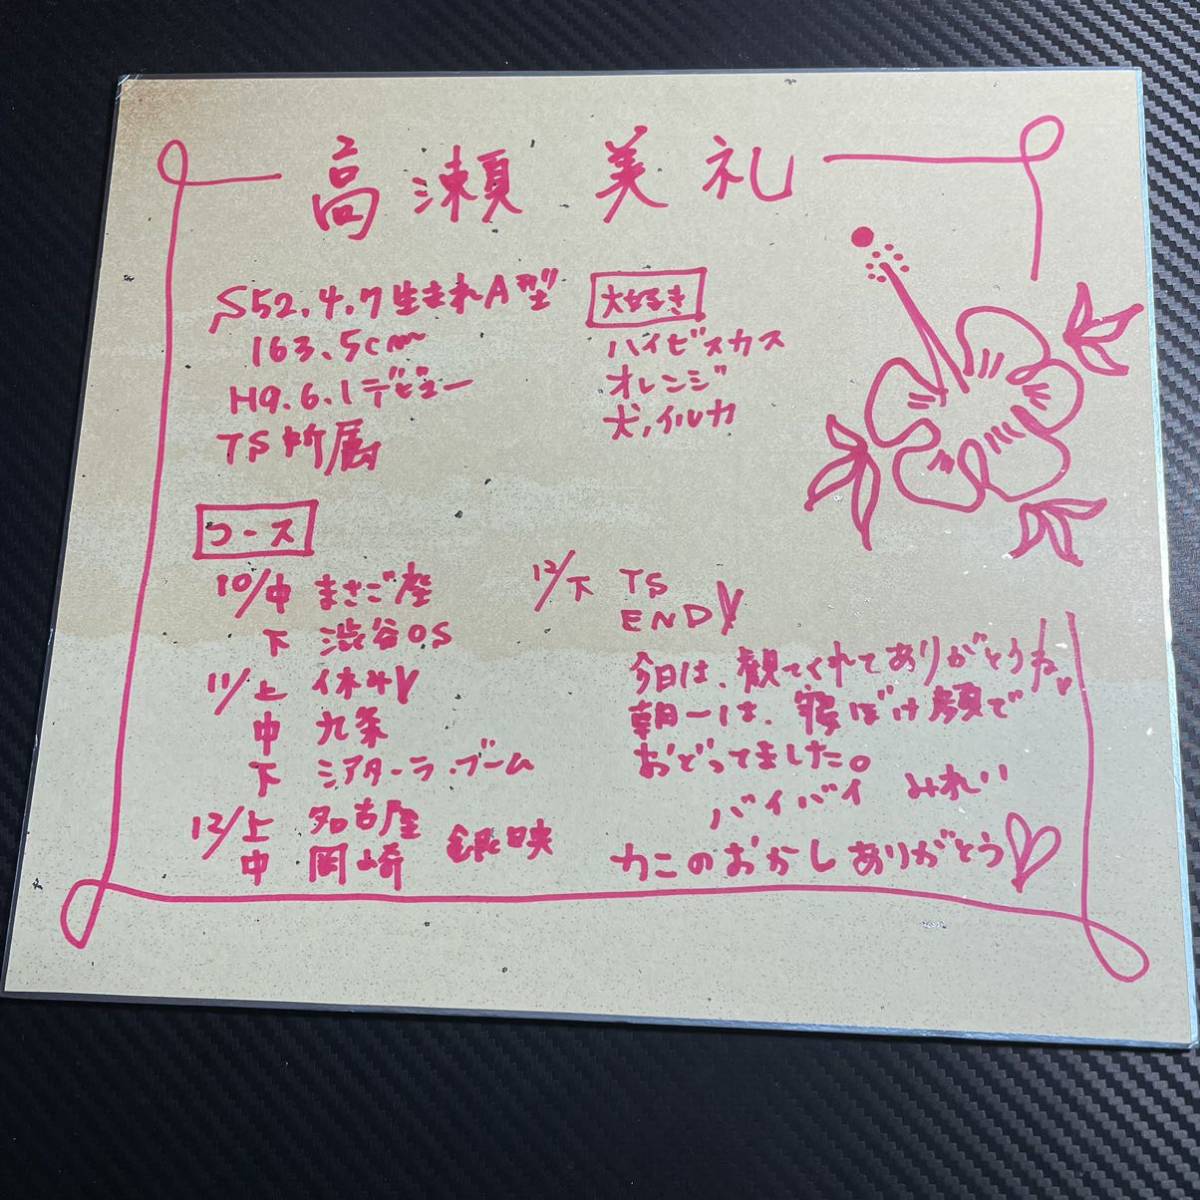 高瀬 美礼
S52.4.7生まれA型
163.5cm
H9.6.1デビュー
TS所属
大好き
ハイビスカス
オレンジ
犬,イルカ
コース
10/中 まさご座
下 渋谷OS
11/上 休み
中 九条
下 シアターラ・ブーム
12/上 名古屋
中 岡崎 銀映
12/下 TS
END
今日は、観てくれてありがとうね
朝一は、寝ぼけ顔で
おどってました。
バイバイ みれい
カニのおかしありがとう♡